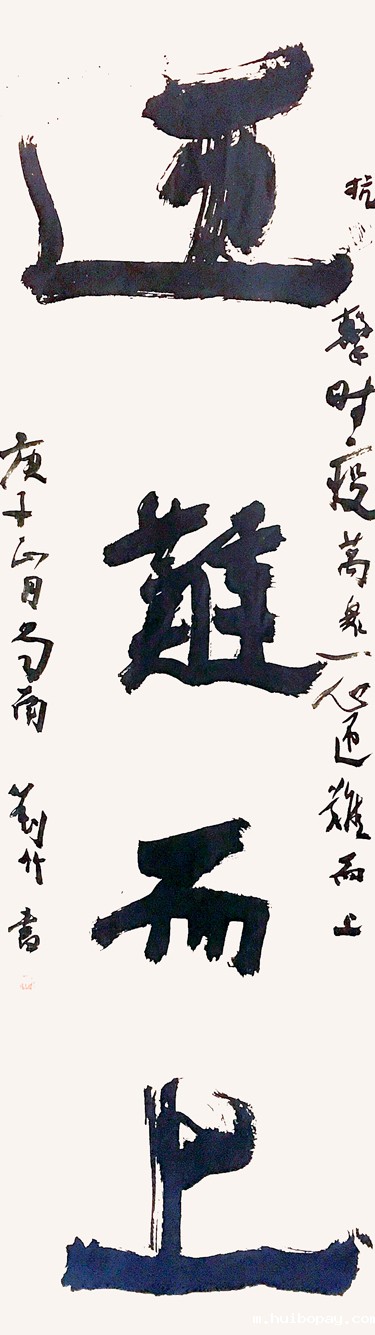 抗擊时疫萬眾一心迎難而上
迎難而上
庚子正月蜀南 劉竹書
m.huibopay.com